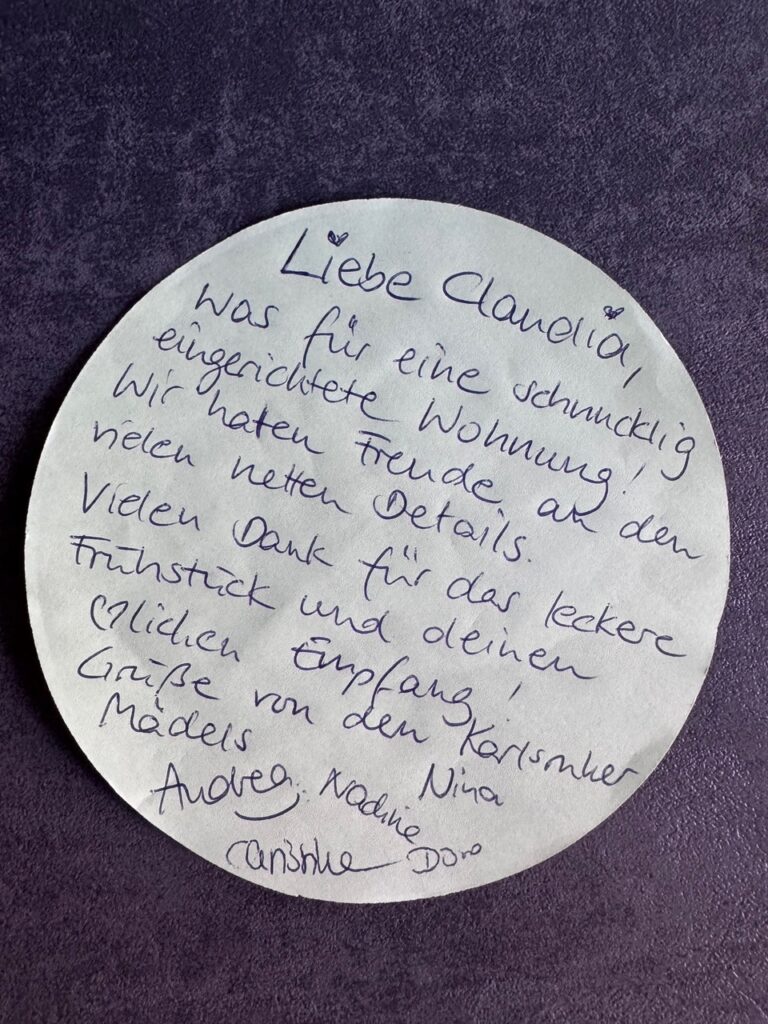 Liebe Claudia,
was für eine schnucklig
eingerichtete Wohnung!
Wir hatten Freude an den
vielen netten Details.
Vielen Dank für das leckere
Frühstück und deinen
♡lichen Empfang!
Grüße von den Karlsruher
Mädels Nina
Andrea Nadine
Doro